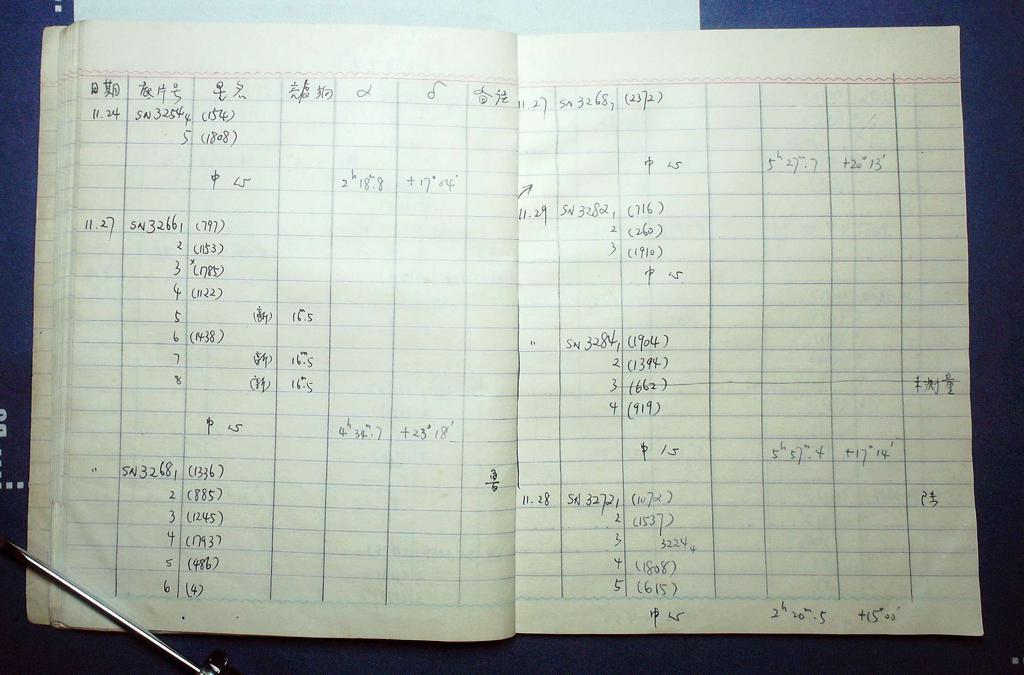 日期 底片号 星名 亮度 α δ 备注
11.24 SN3254₄ (154)
5 (1808)
中心 2ʰ18ᵐ.8 +17°04′
11.27 SN3266₁ (797)
2 (1153)
3 ×(1785)
4 (1122)
5 (新) 16ᵐ.5
6 (1438)
7 (新) 16ᵐ.5
8 (新) 16ᵐ.5
中心 4ʰ34ᵐ.7 +23°18′
〃 SN3268₁ (1336)
2 (885)
3 (1245)
4 (1793)
5 (486)
6 (4)
11.27 SN3268₇ (2372)
中心 5ʰ27ᵐ.7 +20°13′
11.29 SN3282₁ (716)
2 (260)
3 (1910)
中心
〃 SN3284₁ (1904)
2 (1394)
3 (662) 未测量
4 (919)
中心 5ʰ57ᵐ.4 +17°14′
11.28 SN3272₁ (1072) 陆
2 (1537)
3 3224₄
4 (1808)
5 (615)
中心 2ʰ20ᵐ.5 +15°00′